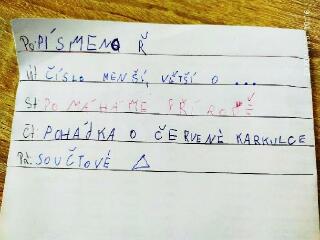 Po: PÍSMENO Ř
Út: ČÍSLO MENŠÍ, VĚTŠÍ O ...
St: POMÁHÁME PŘÍRODĚ
Čt: POHÁDKA O ČERVENÉ KARKULCE
Pá: SOUČTOVÉ △